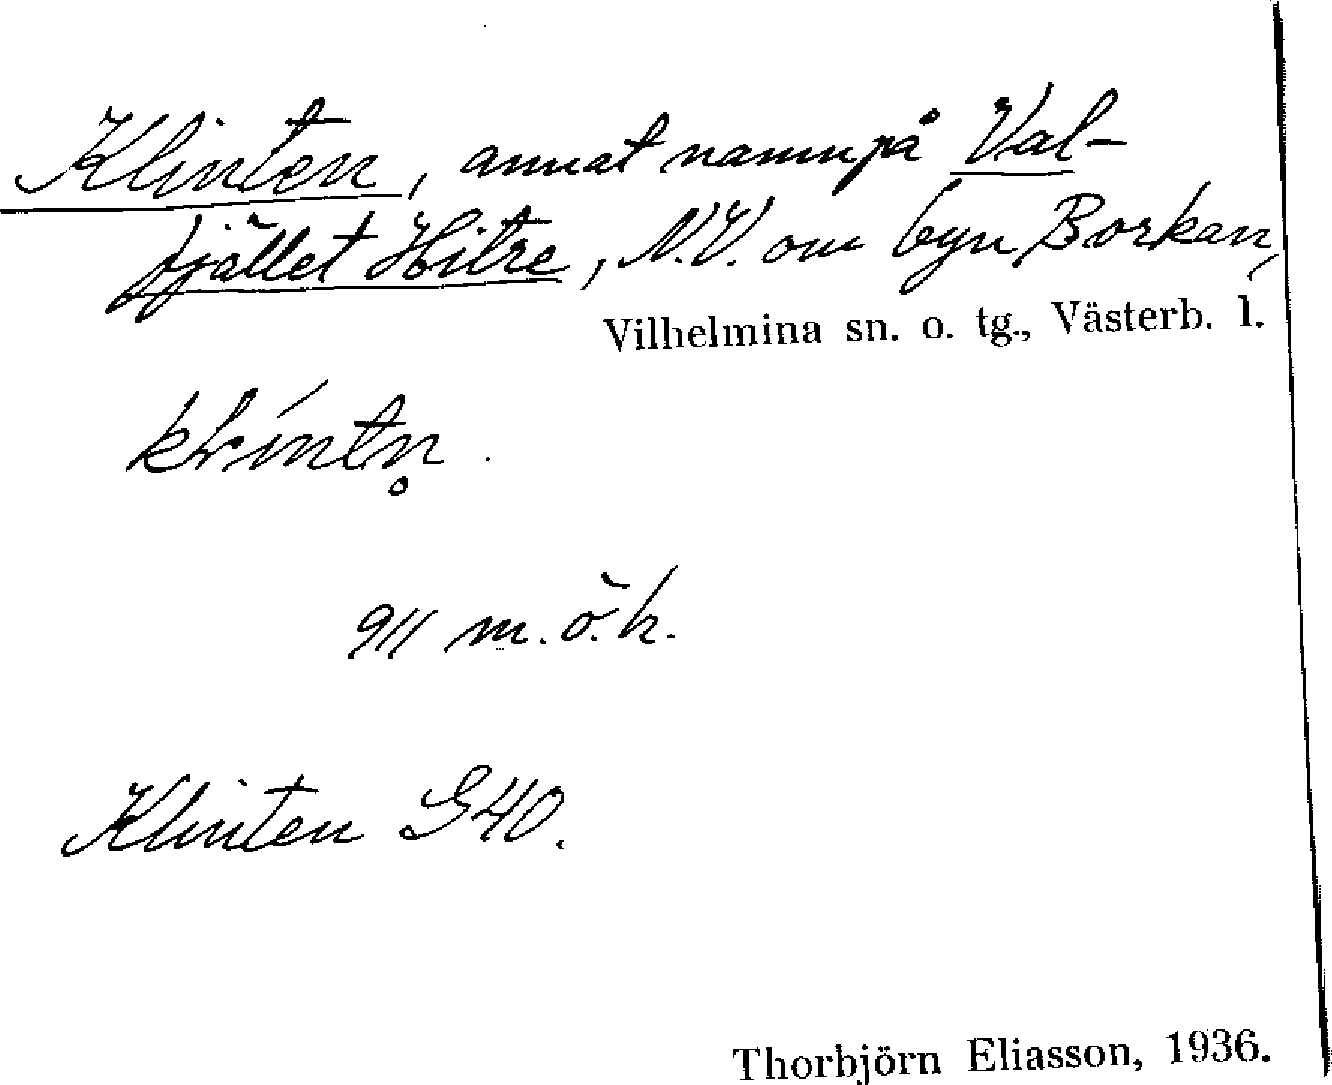 Klinten, annat namn på Val-
fjället Hitre, N.V. om byn Borkan,
Vilhelmina sn. o. tg., Västerb. l.
911 m.ö.h.
Klinten G40.
Thorbjörn Eliasson, 1936.